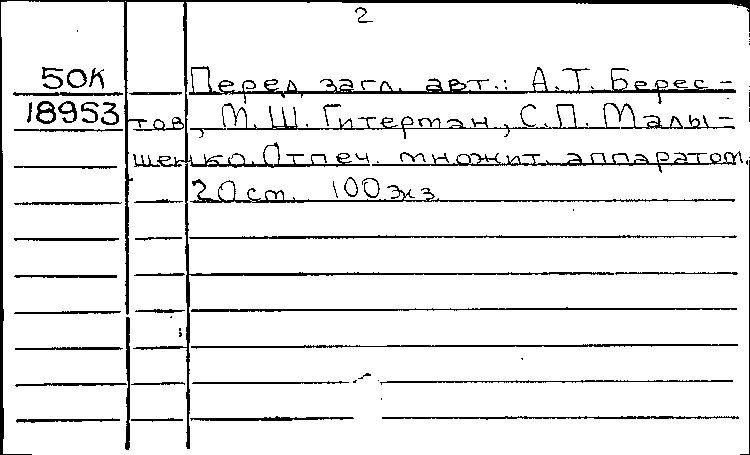 2
50К Перед загл. авт.: А.Т. Берес-
18953 тов, М.Ш. Гитерман, С.П. Малы-
шенко. Отпеч. множит. аппаратом.
20 ст. 100 экз.